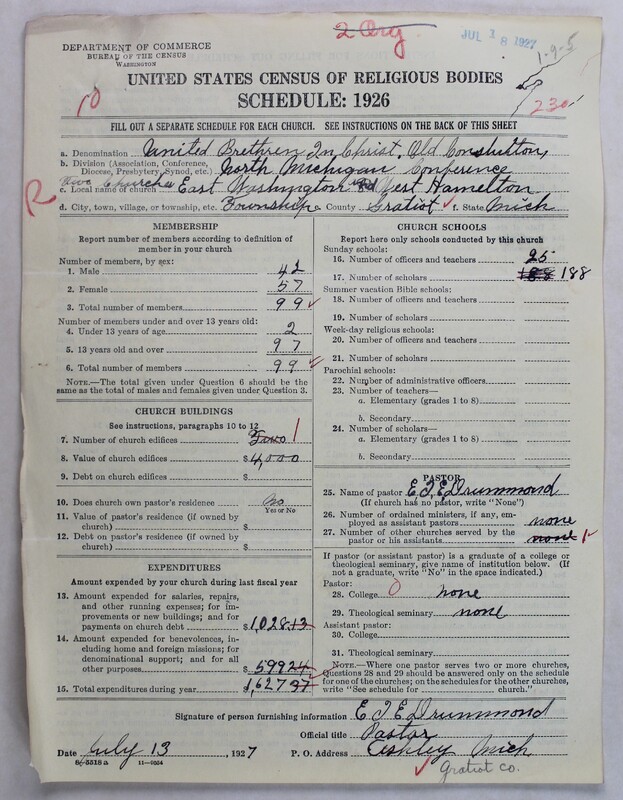 2 Org
JUL 18 1927
1-9-5
DEPARTMENT OF COMMERCE
BUREAU OF THE CENSUS
WASHINGTON
UNITED STATES CENSUS OF RELIGIOUS BODIES
10
SCHEDULE: 1926
230
FILL OUT A SEPARATE SCHEDULE FOR EACH CHURCH. SEE INSTRUCTIONS ON THE BACK OF THIS SHEET
a. Denomination United Brethren In Christ, Old Constution
b. Division (Association, Conference, Diocese, Presbytery, Synod, etc.) North Michigan Conference
Two Churches
R
c. Local name of church East Washington and West Hamelton
d. City, town, village, or township, etc. Township County Gratiot f. State Mich
MEMBERSHIP
Report number of members according to definition of member in your church
Number of members, by sex:
1. Male 42
2. Female 57
3. Total number of members 99
Number of members under and over 13 years old:
4. Under 13 years of age 2
5. 13 years old and over 97
6. Total number of members 99
NOTE.—The total given under Question 6 should be the same as the total of males and females given under Question 3.
CHURCH BUILDINGS
See instructions, paragraphs 10 to 12
7. Number of church edifices Two 1
8. Value of church edifices $4,000
9. Debt on church edifices $
10. Does church own pastor's residence No
Yes or No
11. Value of pastor's residence (if owned by church) $
12. Debt on pastor's residence (if owned by church) $
EXPENDITURES
Amount expended by your church during last fiscal year
13. Amount expended for salaries, repairs, and other running expenses; for improvements or new buildings; and for payments on church debt $1,028.13
14. Amount expended for benevolences, including home and foreign missions; for denominational support; and for all other purposes $599 24
15. Total expenditures during year $1,627 37
CHURCH SCHOOLS
Report here only schools conducted by this church
Sunday schools:
16. Number of officers and teachers 25
17. Number of scholars 188 188
Summer vacation Bible schools:
18. Number of officers and teachers
19. Number of scholars
Week-day religious schools:
20. Number of officers and teachers
21. Number of scholars
Parochial schools:
22. Number of administrative officers
23. Number of teachers—
a. Elementary (grades 1 to 8)
b. Secondary
24. Number of scholars—
a. Elementary (grades 1 to 8)
b. Secondary
PASTOR
25. Name of pastor E T E Drummond
(If church has no pastor, write "None")
26. Number of ordained ministers, if any, employed as assistant pastors none
27. Number of other churches served by the pastor or his assistants none 1
If pastor (or assistant pastor) is a graduate of a college or theological seminary, give name of institution below. (If not a graduate, write "No" in the space indicated.)
Pastor:
28. College 0 none
29. Theological seminary none
Assistant pastor:
30. College
31. Theological seminary
NOTE.—Where one pastor serves two or more churches, Questions 28 and 29 should be answered only on the schedule for one of the churches; on the schedules for the other churches, write "See schedule for church."
Signature of person furnishing information E T E Drummond
Official title Pastor
Date July 13, 1927 P. O. Address Ashley Mich
8-5518 a 11-8054
Gratiot Co.